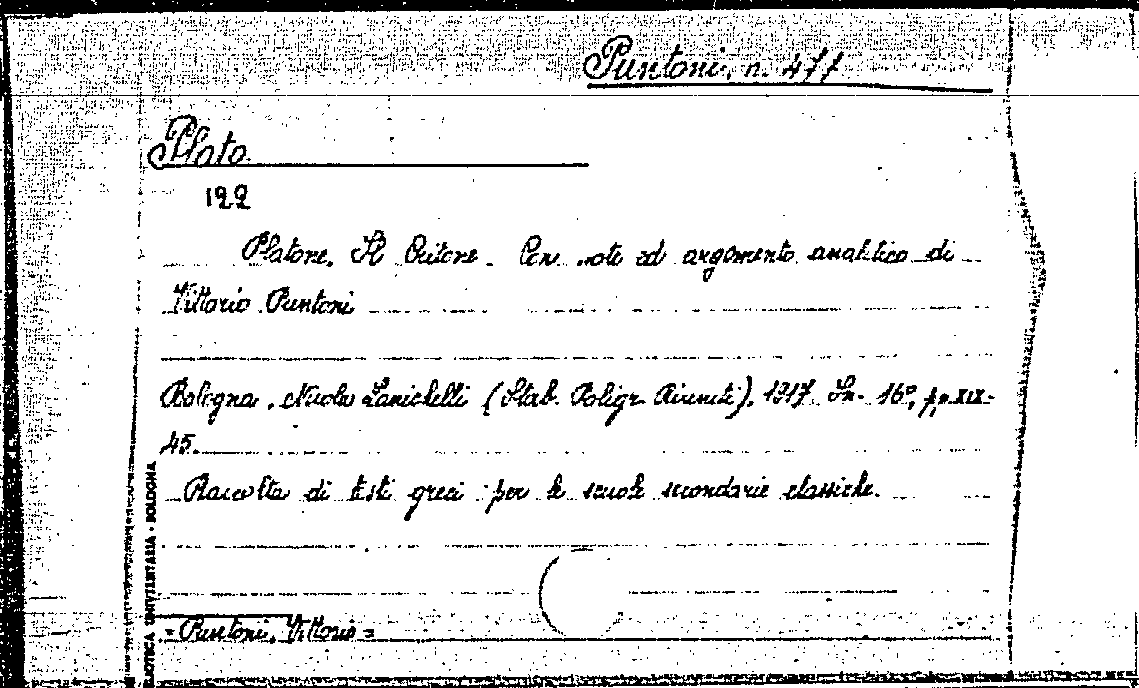 Puntoni, n. 477
Plato
122
Platone. Il Critone. Con note ed argomento analitico di
Vittorio Puntoni
Bologna, Nicola Zanichelli (Stab. Poligr. Riuniti), 1917. In-16º, pp. XIX-
45.
Raccolta di testi greci per le scuole secondarie classiche.
= Puntoni, Vittorio =
BIBLIOTECA UNIVERSITARIA - BOLOGNA